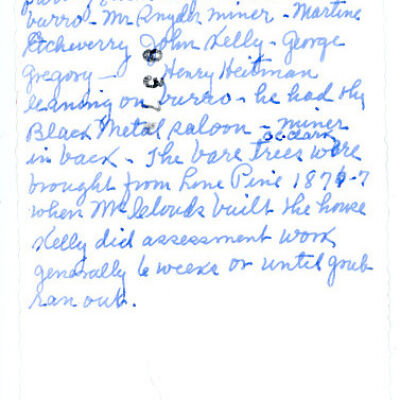 burro - Mr Snyder miner - Martine
Etcheverry John Kelly - George
Gregory - Henry Heitman
leaning on burro - he had the
Black Metal saloon - miner
in back - The bare trees were
brought from Lone Pine 1876-7
when McLeouds built the house
Kelly did assessment work
generally 6 weeks or until grub
ran out.